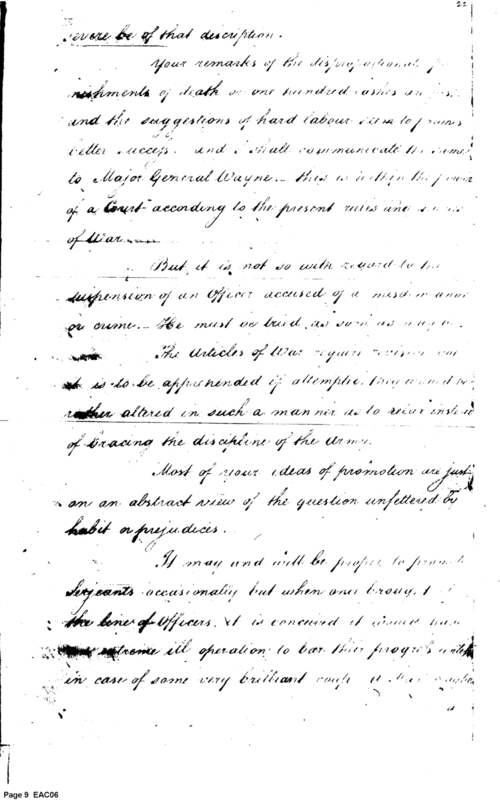 22
severe be of that description.
Your remarks of the disproportionate
nishments of death or one hundred lashes are just
and the suggestions of hard labour seem to promise
better success. and I shall communicate the same
to Major General Wayne - this is within the power
of a Court according to the present rules and
of War.
But it is not so with regard to the
suspension of an Officer accused of a misdemeanor
or crime. - He must be tried as soon as may be.
The Articles of War require revision but
it is to be apprehended if attempted they would be
rather altered in such a manner as to relax instead
of bracing the discipline of the Army.
Most of your ideas of promotion are just
on an abstract view of the question unfettered by
habit or prejudices.
It may and will be proper to promote
Serjeants occasionally but when once brought
the line of Officers, it is conceived it would have
extreme ill operation to bar their progress unless
in case of some very brilliant coup
a
Page 9 EAC06